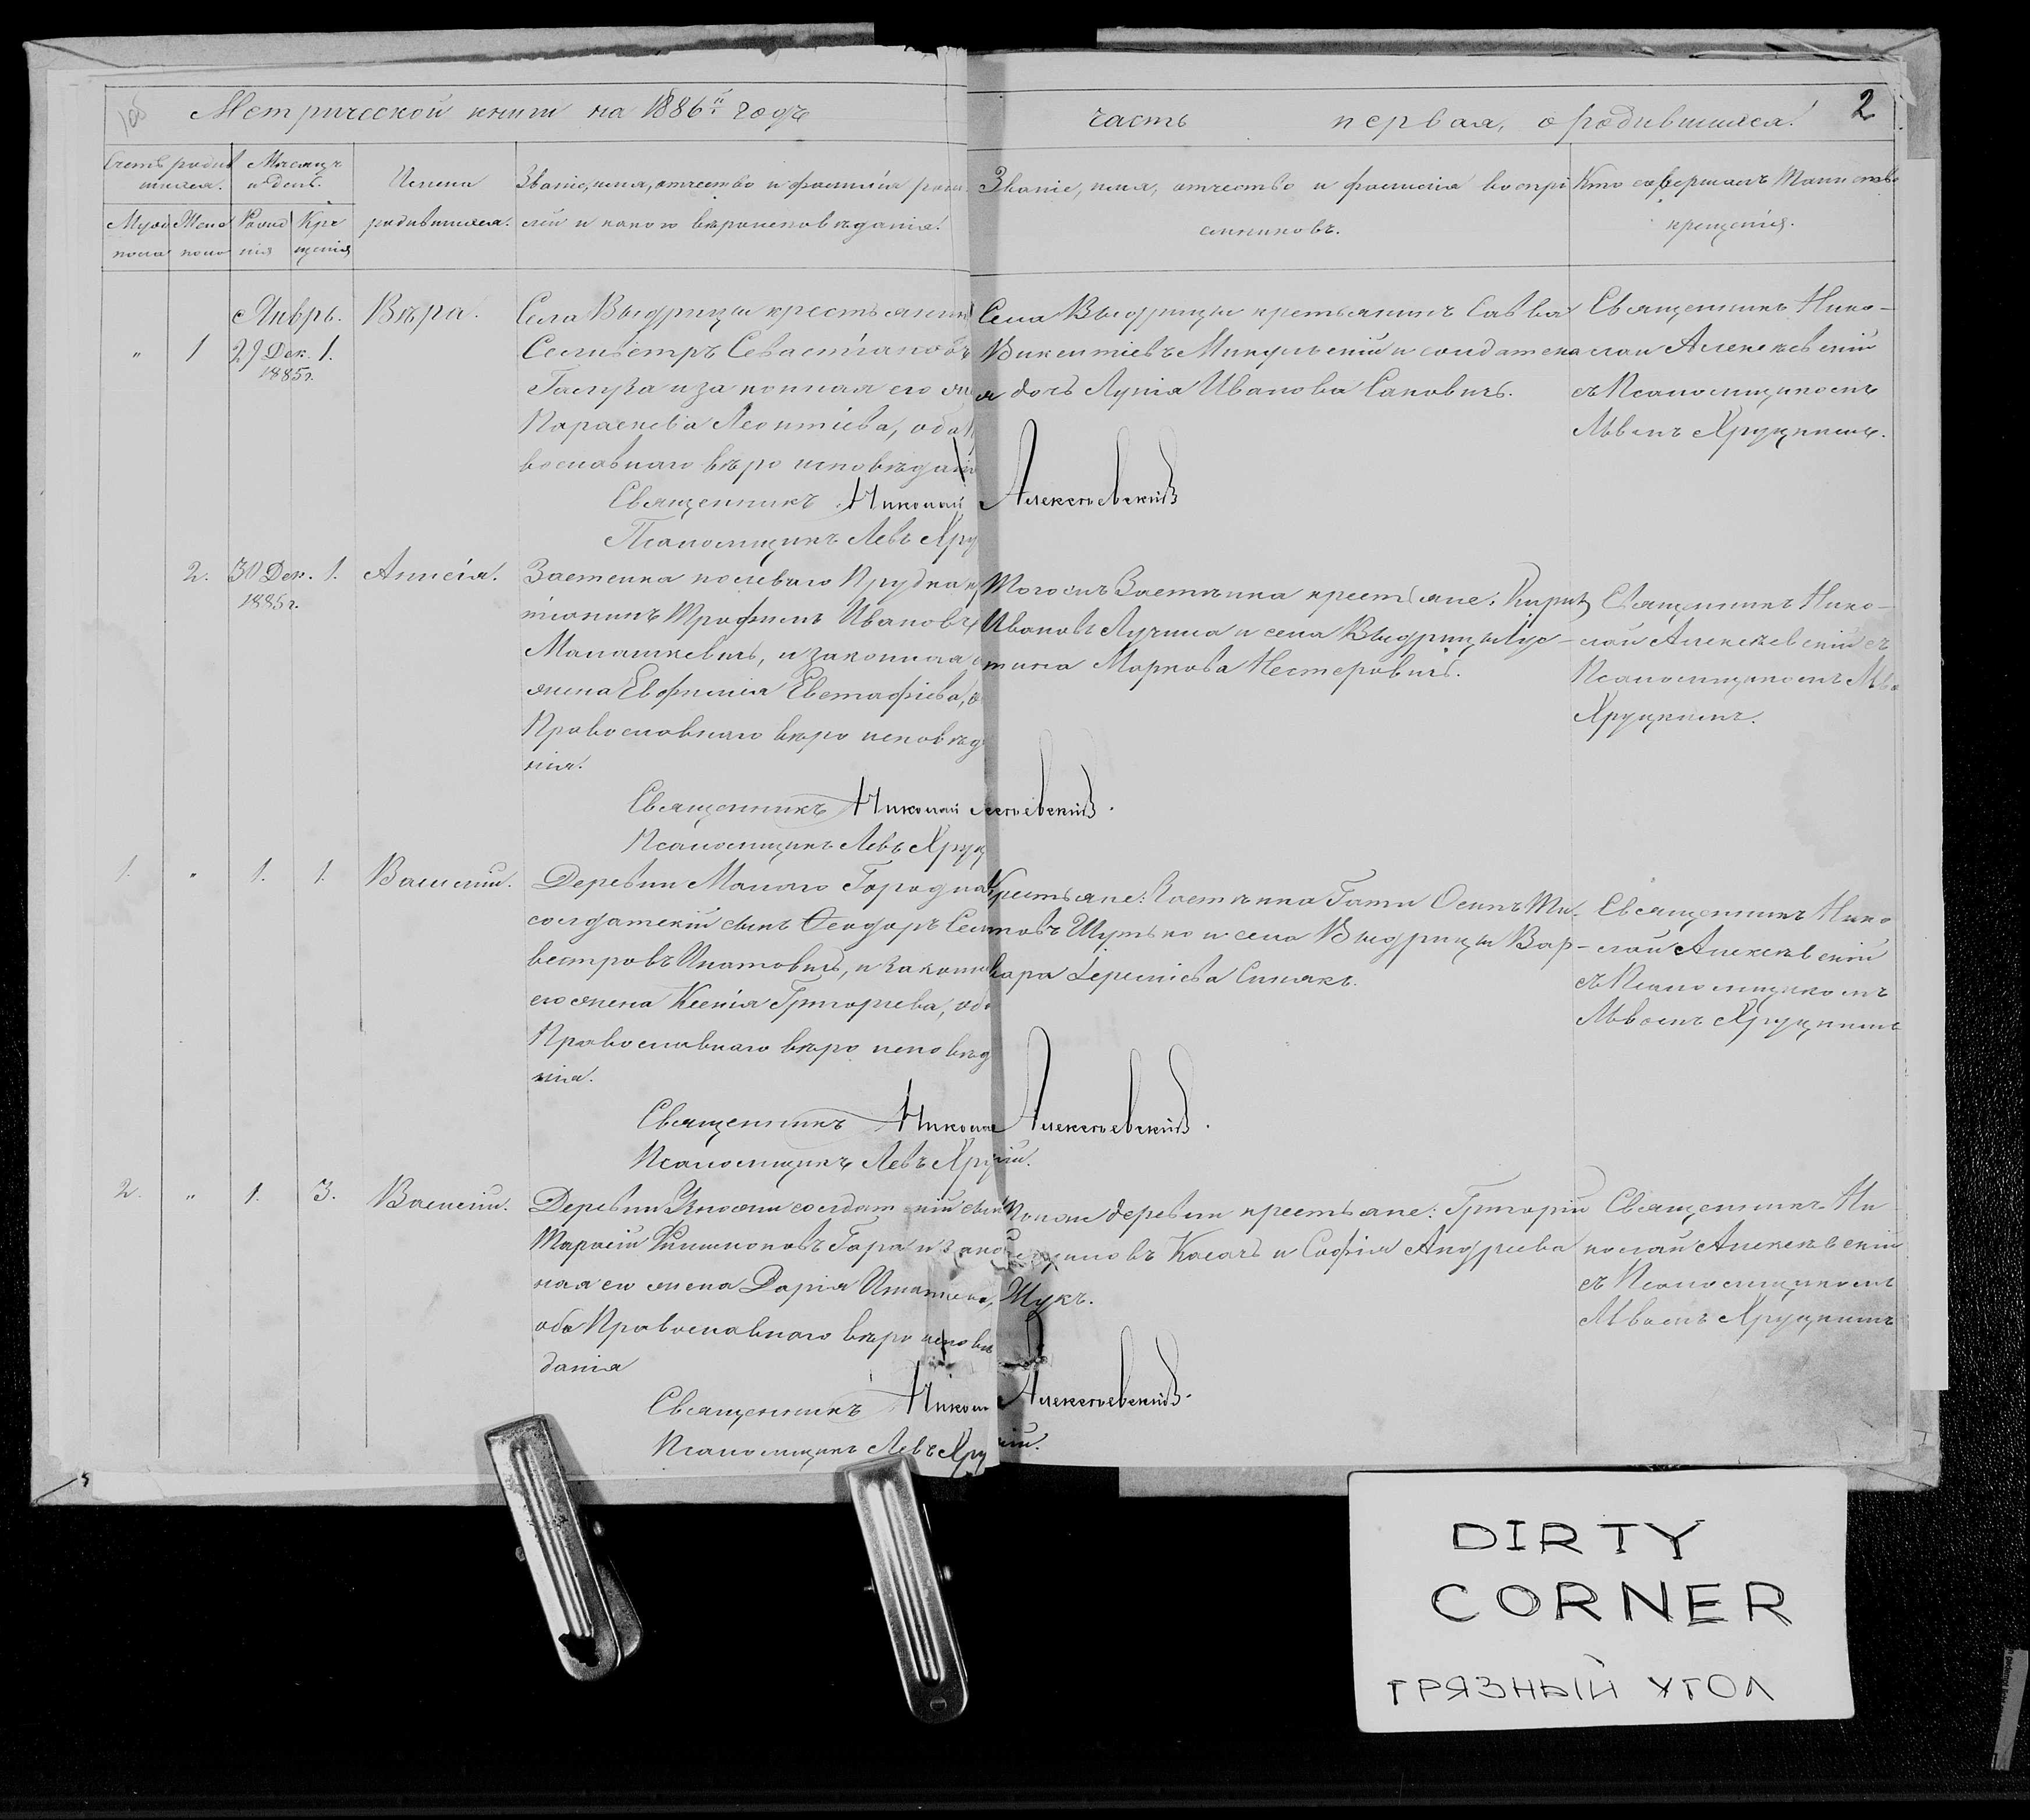 Метрической книги на 1886й годъ
часть первая, о родившихся.
2
Счетъ родив
шихся.
Мѣсяцъ
и день.
Имена
родившихся.
Званіе, имя, отчество и фамилія роди
лей и какого вѣроисповѣданія.
Муж
пола
Женс
поло
Рожд
нія
Кре
щенія
Званіе, имя, отчество и фамилія воспрі
емниковъ.
Кто совершалъ таинство
крещенія.
Январь.
" 1 29 Дек. 1.
1885г.
Вѣра.
Села Выдрицы крестьянинъ
Селивестръ Севастіановъ
Галуза и законная его же
Параскева Леонтіева, оба П
вославнаго вѣроисповѣданія
Священникъ Николай Алексѣевскій
Псаломщикъ Левъ Хру
Села Выдрицы кретьянинъ Савва
Викентіевъ Микульскій и солдатска
я дочь Лукія Иванова Сановичъ.
Священникъ Нико-
лай Алексѣевскій
съ Псаломщикомъ
Львомъ Хруцкимъ.
2. 30 Дек. 1.
1885г.
Анисія.
Застенка полеваго Прудка к
тіанинъ Трофимъ Ивановъ
Малашкевичъ, и законная е
жена Евфимія Евстафіева, о
Православнаго вѣроисповѣд
нія.
Священникъ Николай ксѣевскій.
Псаломщикъ Левъ Хруц
Тогожъ Застѣнка крестьяне: Кирилъ
Ивановъ Лучина и села Выдрицы Іус-
тина Маркова Нестеровичъ.
Священникъ Нико-
лай Алексѣевскій съ
Псаломщикомъ Льво
Хруцкимъ.
1. " 1. 1.
Василій.
Деревни Малаго Городна
солдатскій сынъ Ѳеодоръ Сели
вестровъ Игнатовичъ, и законн
его жена Ксенія Григорьева, об
Православнаго вѣроисповѣд
нія.
Священникъ Николай Алексѣевскій.
Псаломщикъ Левъ Хру кій.
Крестьяне: Застѣнка Гати Осипъ Ти-
товъ Шутько и села Выдрицы Вар-
вара Сергіева Синякъ.
Священникъ Нико
лай Алексѣевскій
съ Псаломщикомъ
Львомъ Хруцкимъ
2. " 1. 3.
Василій.
Деревни солдатскій сынъ
Тарасій Филимоновъ Гора и закон
ная его жена Дарія Игнатьева,
оба Православнаго вѣроисповѣ
данія
Священникъ Никол Алексѣевскій.
Псаломщикъ Левъ Хру кій.
деревни крестьяне: Григорій
Косачъ и Софія Андреева
Шукъ.
Священникъ Ни
колай Алексѣевскій
съ Псаломщикомъ
Львомъ Хруцкимъ
DIRTY
CORNER
ГРЯЗНЫЙ УГОЛ